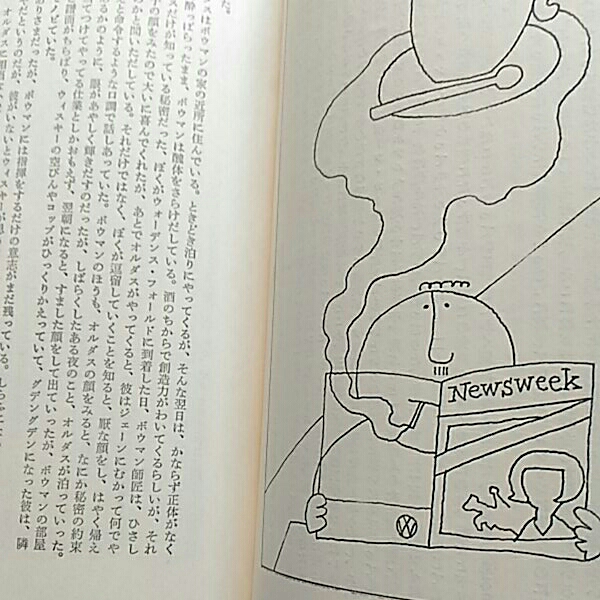 た。
スはボウマンの家の近所に住んでいる。ときどき泊りにやってくるが、そんな翌日は、かならず正体がなく
酔っぱらったまま、ボウマンは醜体をさらけだしている。酒のちからで創造力がわいてくるらしいが、それ
スだけが知っている秘密だった。ぼくがウォーデンス・フォールドに到着した日、ボウマン師匠は、ひさし
の顔をみたので大いに喜んでくれたが、あとでオルダスがやってくると、彼はジェーンにむかって何でや
のかと聞いただしている。それだけではなく、ぼくが逗留していくことを知ると、厭な顔をし、はやく帰え
と命令するような口調で話しあっていた。ボウマンのほうも、オルダスの顔をみると、なにか秘密の約束
あるかのように、眼があやしく輝きだすのだったが、しばらくしたある夜のこと、オルダスが泊っていった。
てつけてやってる仕業としかおもえず、翌朝になると、すました顔をして出ていったが、ボウマンの部屋
がちらばり、ウィスキーの空びんやコップがひっくりかえっていて、グデングデンになった彼は、隣
ノビていた。
ありさまだったが、ボウマンには指揮をするだけの意志がまだ残っている。
だというのだが、彼がいないとウィスキーが
オルダスに
Newsweek
VW